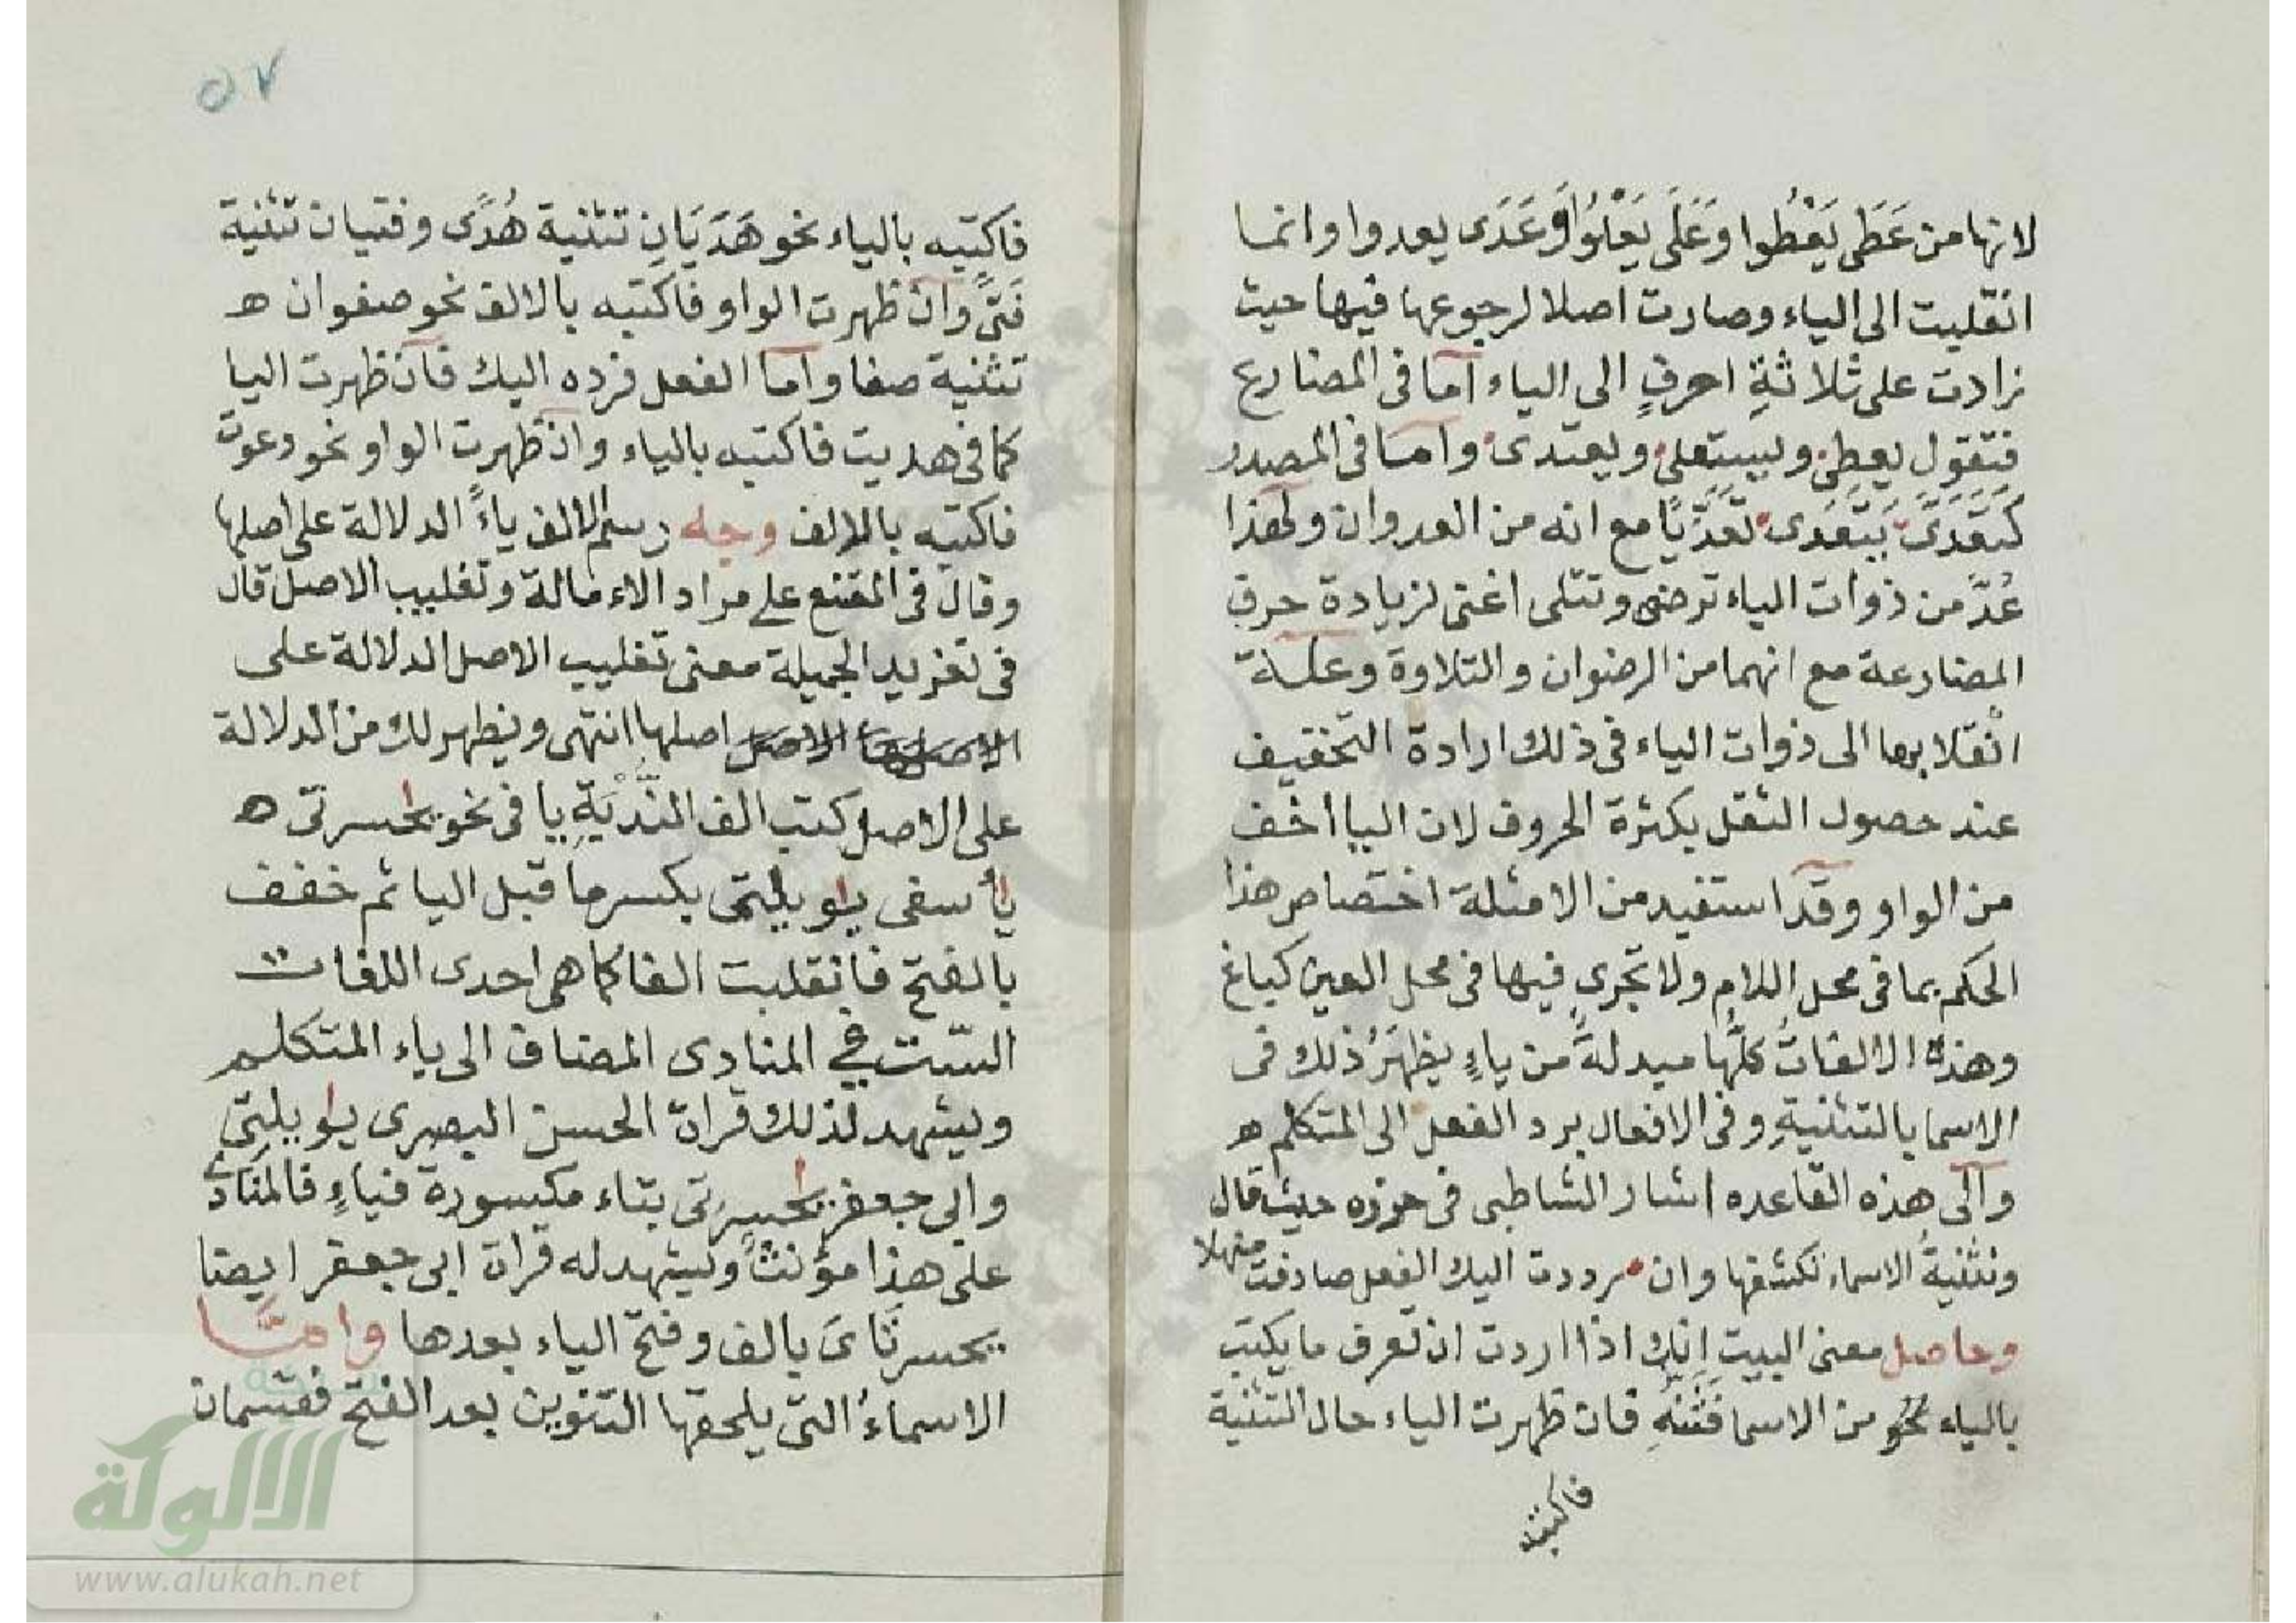 لانها من عَطَى يَعْطُوا وَعَلَى يَعْلُوُا وَعَدَى يعدوا وانما
انقلبت الى الياء وصارت اصلا لرجوعها فيها حيث
زادت على ثلاثةِ احرفٍ الى الياء اما فى المضارع
فتقول يعطِى ويستعلى ويعتدى واما فى المصدر
كتَعَدَّى يَتَعَدى تعَدّيًا مع انه من العدوان ولهذا
عُدَّ من ذوات الياء ترضى وتتلى اغنى لزيادة حرف
المضارعة مع انهما من الرضوان والتلاوة وعلة
انقلابها الى ذوات الياء فى ذلك ارادة التخفيف
عند حصول الثقل بكثرة الحروف لان اليا اخف
من الواو وقد استفيد من الامثلة اختصاص هذا
الحكم بما فى محل اللامِ ولا تجرى فيها فى محل العين كباغ
وهذه الالفاتُ كلُّها مبدلةً من ياءٍ يظهَرُ ذلك فى
الاسما بالتثنيةِ وفى الافعال برد الفعل الى المتكلم ه
والى هذه القاعده اشار الشاطبى فى حرزه حيث قال
وتثنيةُ الاسماء تكشفها وان رددت اليك الفعل صادفت منهلا
وحاصل معنى البيت انك اذا اردت ان تعرف ما يكتب
بالياء نحو من الاسما فثَنِّهِ فان ظهرت الياء حال التثنية
فاكتبه
٥٧
فاكتبه بالياء نحو هَدَيَانِ تثنية هُدًى وفتيان تثنية
فَتًى وان ظهرت الواو فاكتبه بالالف نحو صفوان ه
تثنية صفا واما الفعل فرده اليك فان ظهرت اليا
كما فى هديت فاكتبه بالياء وان ظهرت الواو نحو دعوت
فاكتبه بالالف وجه رسم الالف ياءً الدلالة على اصلها
وقال فى المقنع على مراد الاءمالة وتغليب الاصل قال
فى تغريد الجميلة معنى تغليب الاصل الدلالة على
اصلها انتهى ويظهر لك من الدلالة
على الاصل كتب الف الندْبَةِ يا فى نحو يحسرتى ه
يأسفى يويلتى بكسر ما قبل اليا ثم خفف
بالفتح فانقلبت الفا كما هى احدى اللغات
الستّ فى المنادى المضاف الى ياء المتكلم
ويشهد لذلك قراة الحسن البصرى يويلتِى
وابى جعفر يحسرتى بتاء مكسورة فياءٍ فالمنادى
على هذا مؤنثٌ ويشهد له قراة ابى جعفر ايضا
يحسرتَاىَ بالف وفتح الياء بعدها وامَّا
الاسماءُ التى يلحقها التنوين بعد الفتح فقسمان
الالوكة
www.alukah.net